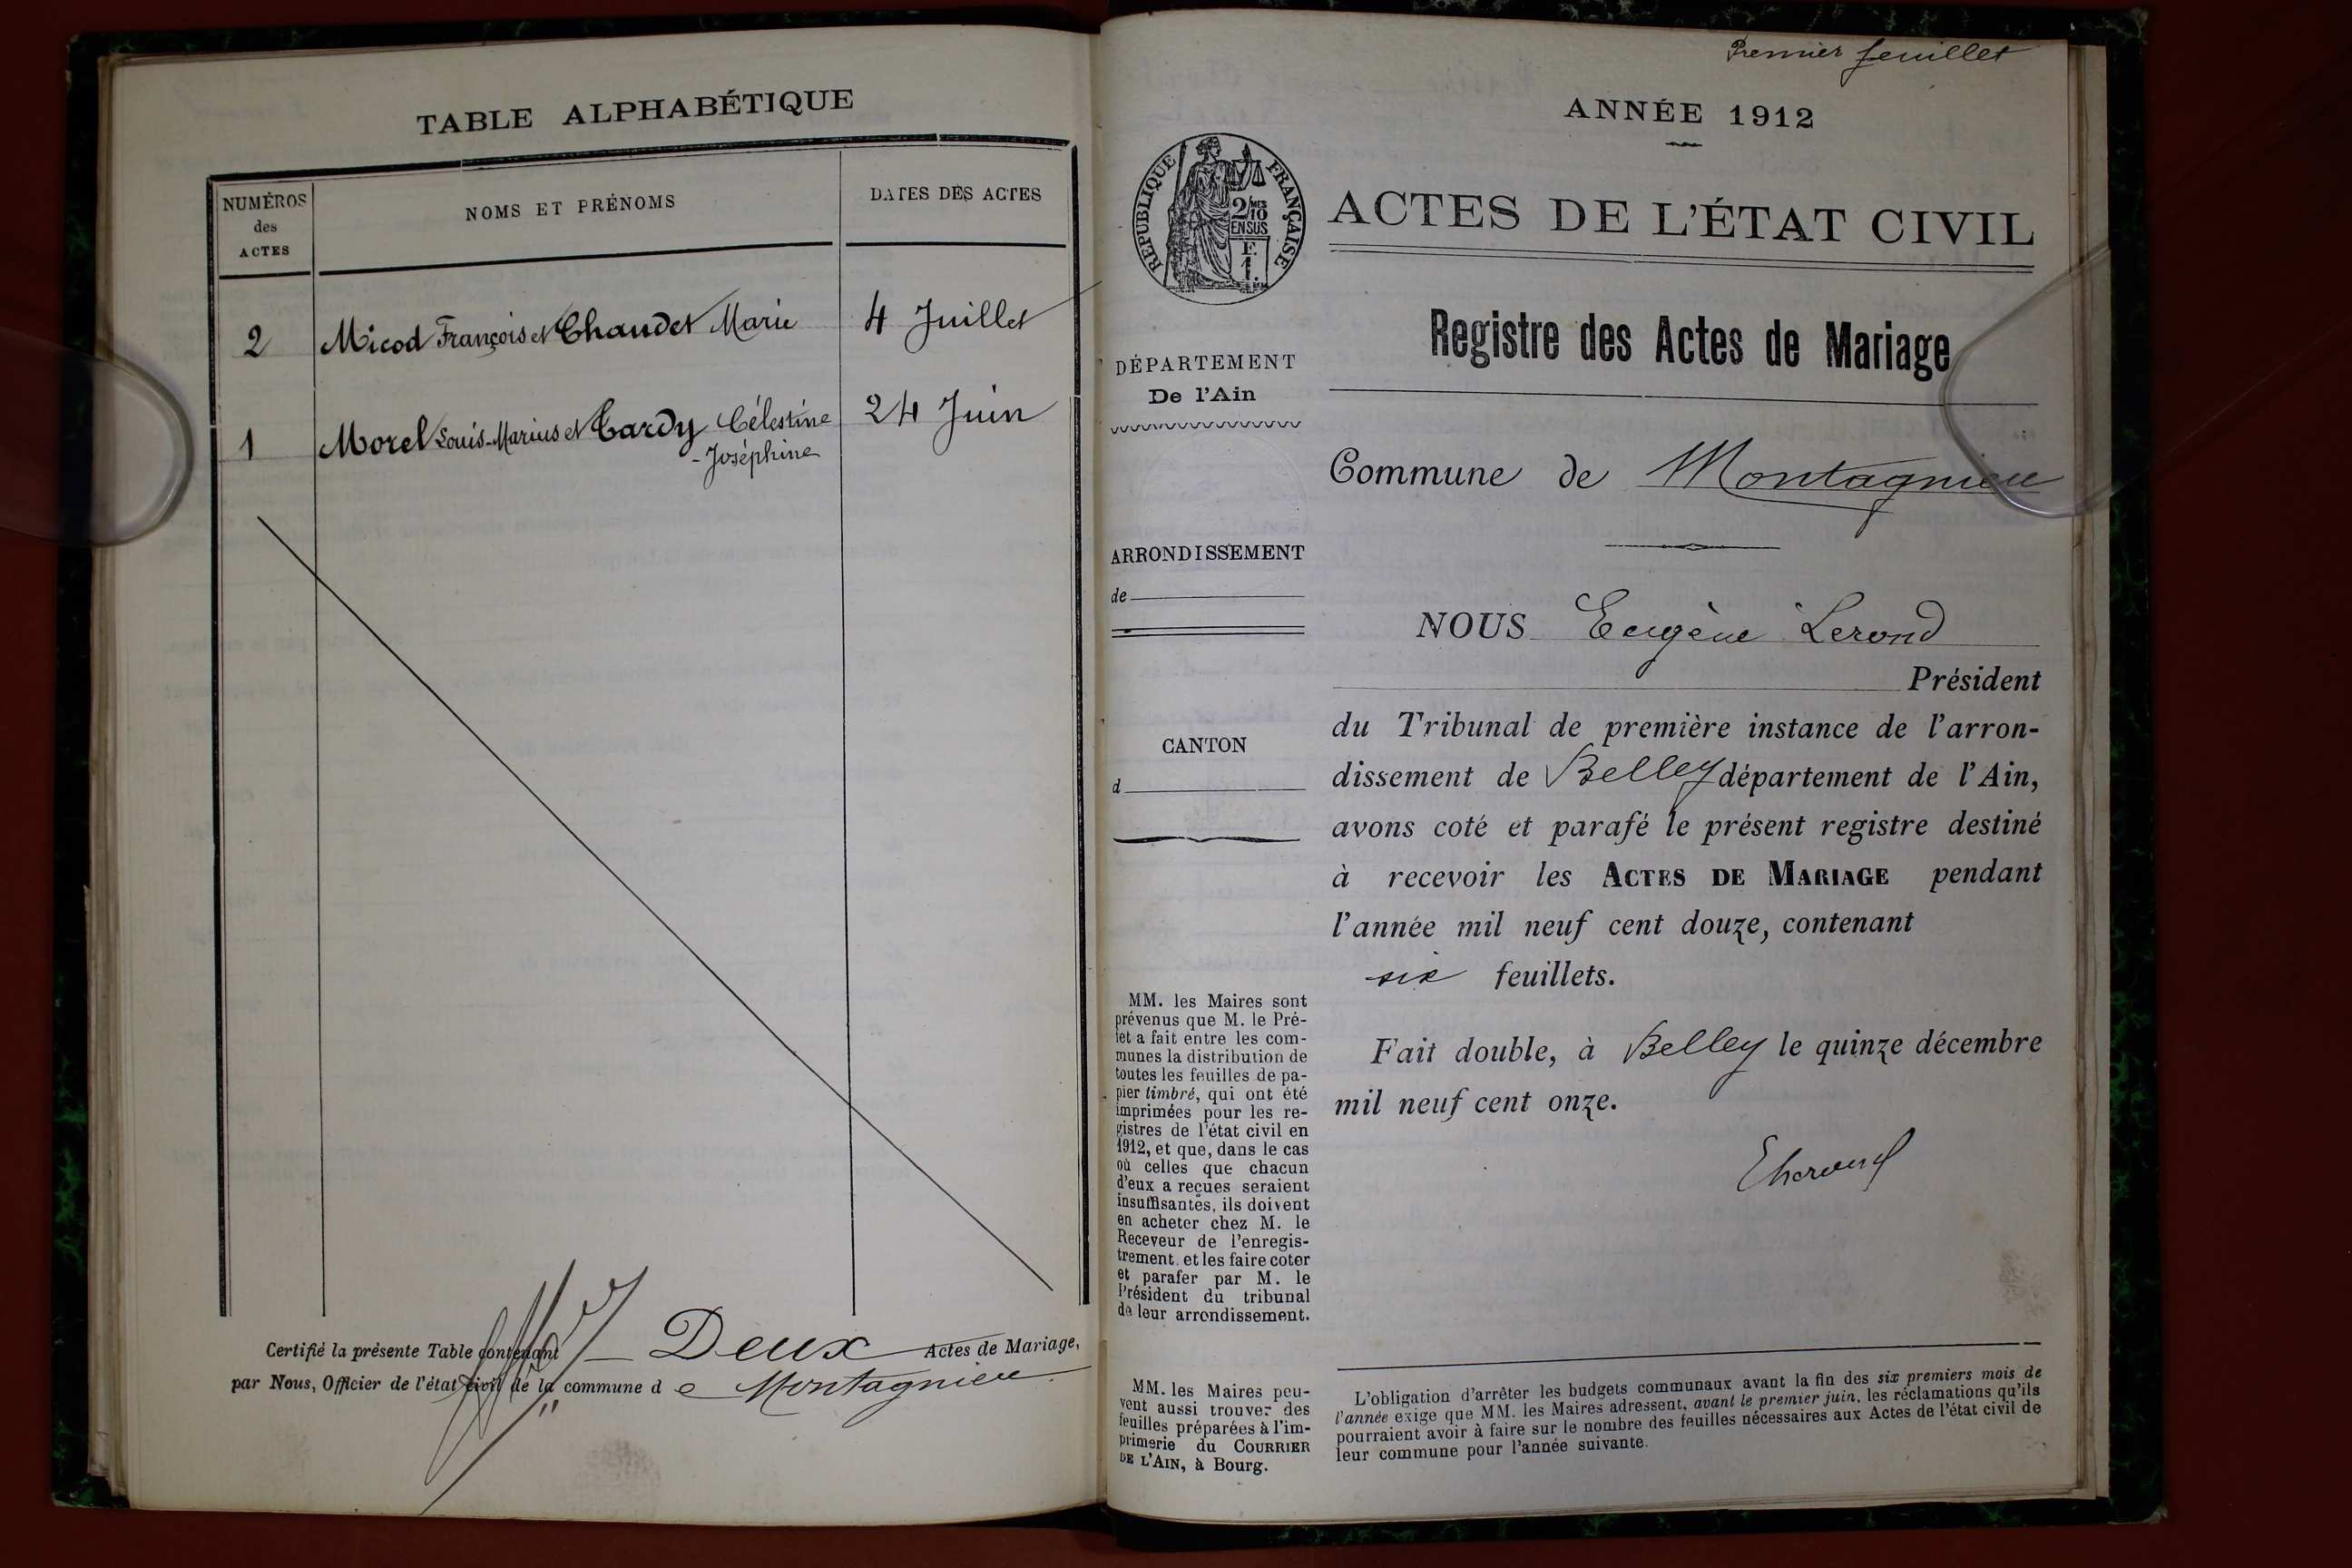 TABLE ALPHABÉTIQUE
NUMÉROS
des
ACTES
NOMS ET PRÉNOMS
DATES DES ACTES
2 Micod François et Chaudet Marie 4 Juillet
1 Morel Louis-Marius et Tardy Célestine 24 Juin
-Joséphine
Certifié la présente Table contenant — Deux Actes de Mariage,
par Nous, Officier de l'état civil de la commune de Montagnieu.
Premier feuillet
ANNÉE 1912
RÉPUBLIQUE FRANÇAISE
2/10MES
EN SUS
F.
1.
ACTES DE L'ÉTAT CIVIL
Registre des Actes de Mariage
DÉPARTEMENT
De l'Ain
Commune de Montagnieu
ARRONDISSEMENT
de
CANTON
d
NOUS Eugène Lerond
Président
du Tribunal de première instance de l'arron-
dissement de Belley département de l'Ain,
avons coté et parafé le présent registre destiné
à recevoir les ACTES DE MARIAGE pendant
l'année mil neuf cent douze, contenant
six feuillets.
Fait double, à Belley le quinze décembre
mil neuf cent onze.
MM. les Maires sont
prévenus que M. le Pré-
fet a fait entre les com-
munes la distribution de
toutes les feuilles de pa-
pier timbré, qui ont été
imprimées pour les re-
gistres de l'état civil en
1912, et que, dans le cas
où celles que chacun
d'eux a reçues seraient
insuffisantes, ils doivent
en acheter chez M. le
Receveur de l'enregis-
trement. et les faire coter
et parafer par M. le
Président du tribunal
de leur arrondissement.
MM. les Maires peu-
vent aussi trouver des
feuilles préparées à l'im-
primerie du COURRIER
DE L'AIN, à Bourg.
L'obligation d'arrêter les budgets communaux avant la fin des six premiers mois de
l'année exige que MM. les Maires adressent, avant le premier juin, les réclamations qu'ils
pourraient avoir à faire sur le nombre des feuilles nécessaires aux Actes de l'état civil de
leur commune pour l'année suivante.